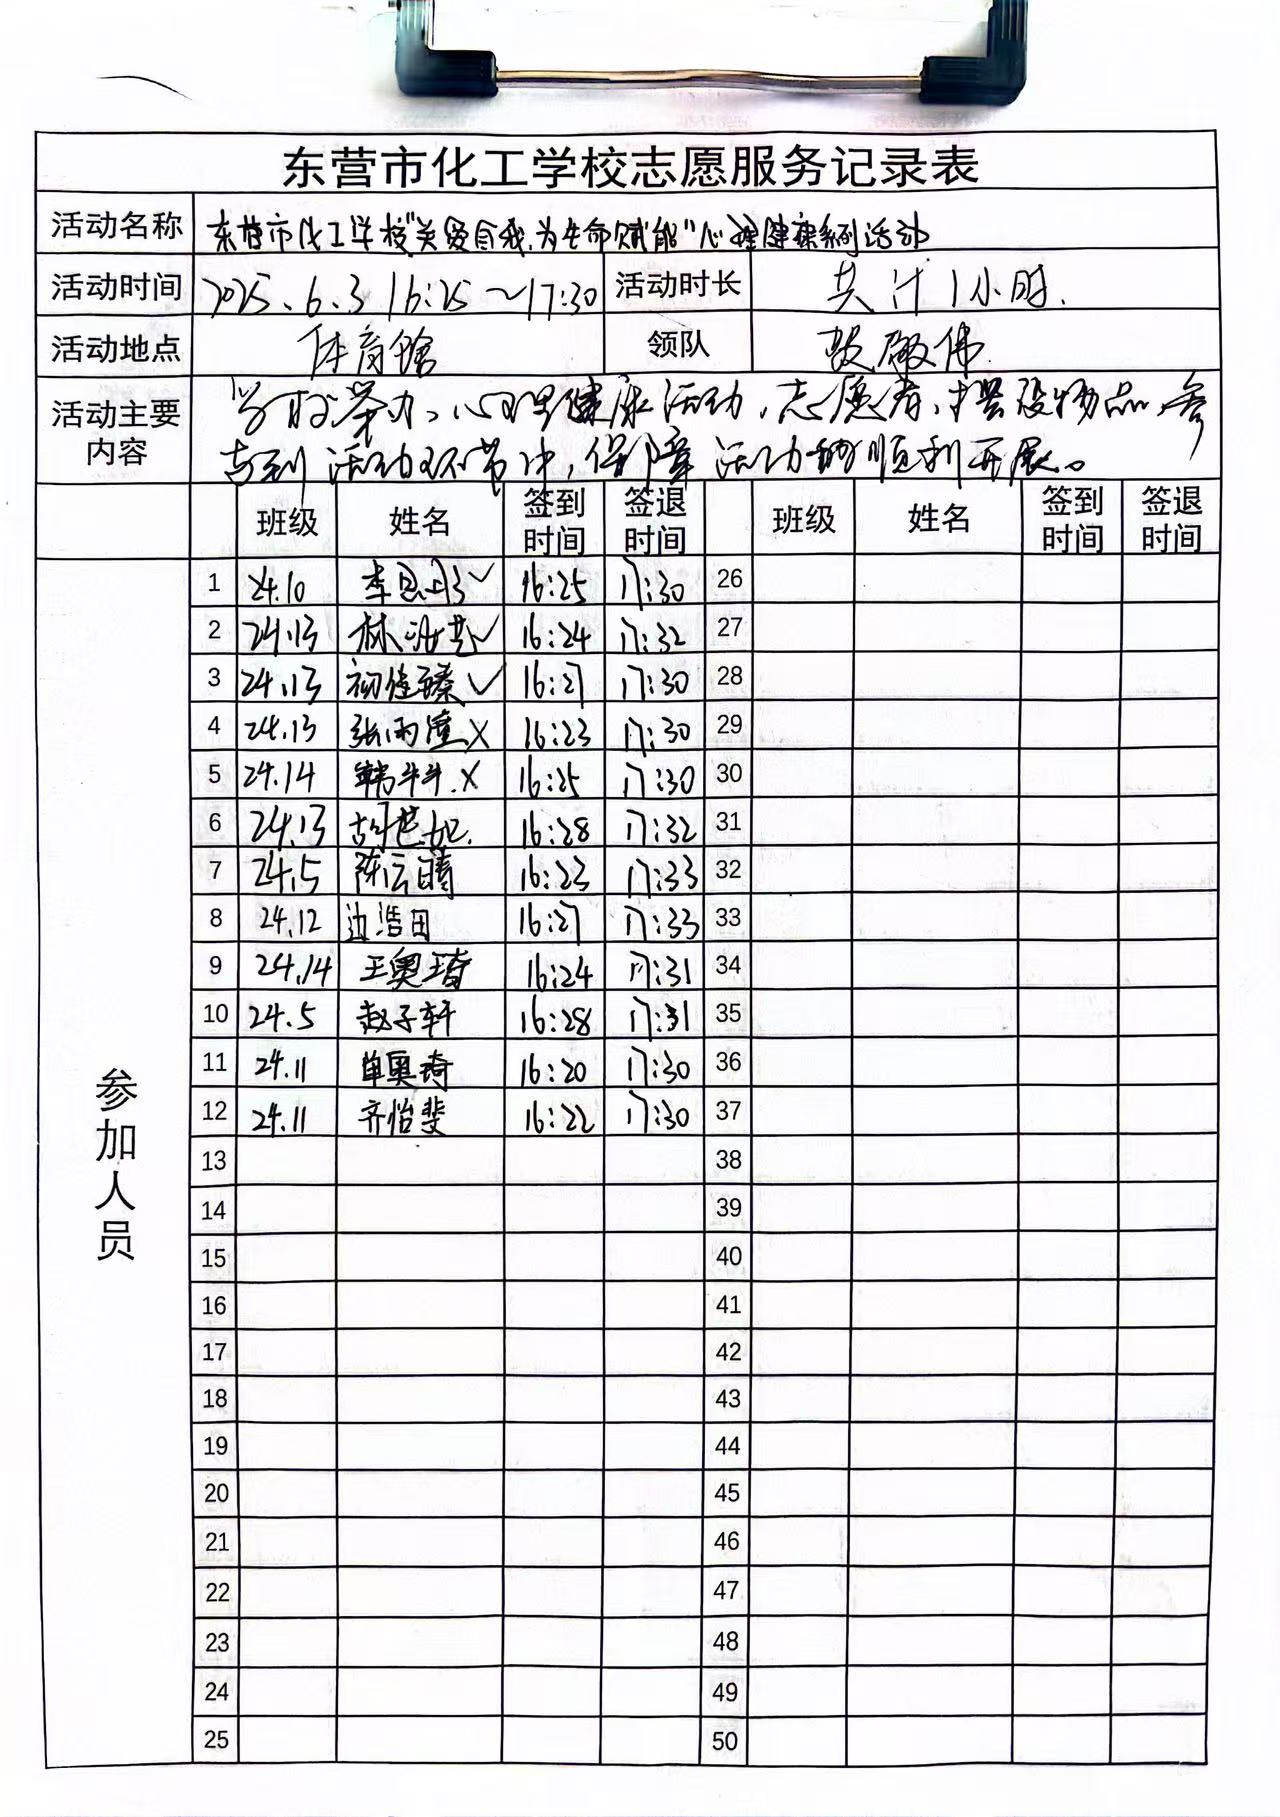 东营市化工学校志愿服务记录表
活动名称 东营市化工学校"关爱自我,为生命赋能"心理健康系列活动
活动时间 2025.6.3 16:25~17:30 活动时长 共计1小时.
活动地点 体育馆 领队 敬伟
活动主要内容 学校举办心理健康活动,志愿者,摆设物品,参
与到活动环节中,保障活动的顺利开展。
班级 姓名 签到时间 签退时间 班级 姓名 签到时间 签退时间
参加人员
1 24.10 李思 ✓ 16:25 17:30 26
2 24.13 林 ✓ 16:24 17:32 27
3 24.13 初佳臻 ✓ 16:27 17:30 28
4 24.13 张雨潼 X 16:23 17:30 29
5 24.14 韩斗斗. X 16:25 17:30 30
6 24.13 胡芭妃. 16:28 17:32 31
7 24.5 陈云晴 16:23 17:33 32
8 24.12 边浩田 16:27 17:33 33
9 24.14 王奥琦 16:24 17:31 34
10 24.5 赵子轩 16:28 17:31 35
11 24.11 单奥琦 16:20 17:30 36
12 24.11 齐怡斐 16:22 17:30 37
13 38
14 39
15 40
16 41
17 42
18 43
19 44
20 45
21 46
22 47
23 48
24 49
25 50